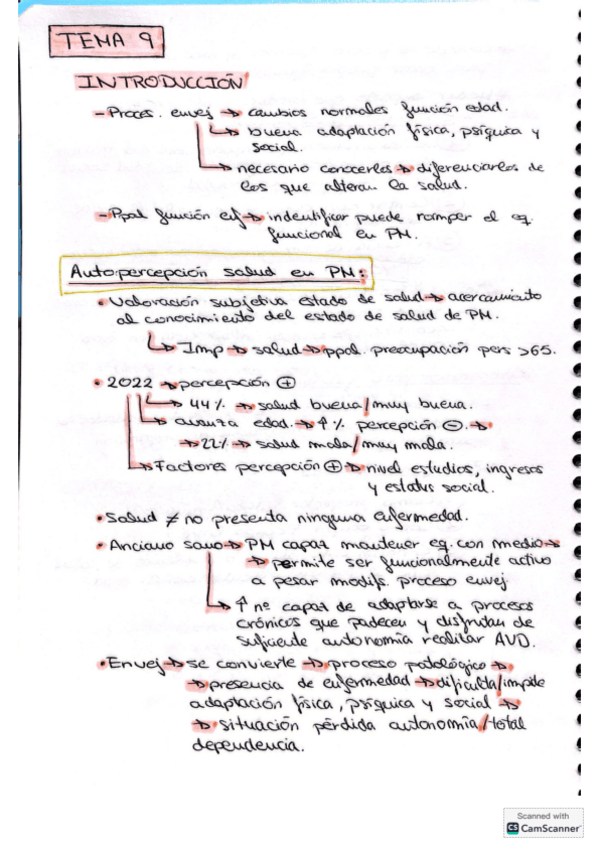 TEMA 9
INTRODUCCIÓN
- Proces. envej → cambios normales función edad.
↳ buena adaptación física, psíquica y
social.
↳ necesario conocerlos → diferenciarlos de
los que alteran la salud.
- Ppal función enf → indentificar puede romper el eq.
funcional en PM.
Autopercepción salud en PM:
• Valoración subjetiva estado de salud → acercamiento
al conocimiento del estado de salud de PM.
↳ Imp → salud → ppal. preocupación pers >65.
• 2022 → percepción ⊕
↳ 44% → salud buena/muy buena.
↳ avanza edad. → ↑ % percepción ⊖. →
→ 22% → salud mala/muy mala.
↳ Factores percepción ⊕ → nivel estudios, ingresos
y estatus social.
• Salud ≠ no presenta ninguna enfermedad.
• Anciano sano → PM capaz mantener eq. con medio →
→ permite ser funcionalmente activo
a pesar modifs. proceso envej.
↳ ↑ nº capaz de adaptarse a procesos
crónicos que padecen y disfrutan de
suficiente autonomía realizar AVD.
• Envej → se convierte → proceso patológico →
→ presencia de enfermedad → dificulta/impide
adaptación física, psíquica y social →
→ situación pérdida autonomía/total
dependencia.
Scanned with
CS CamScanner